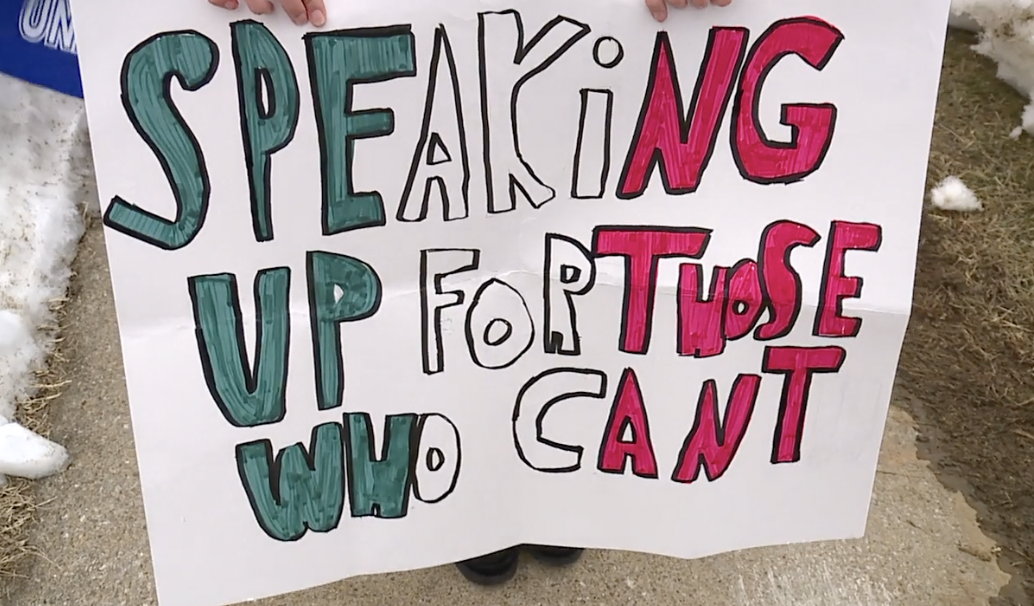 SPEAKiNG
UP FOR THOSE
WHO CANT